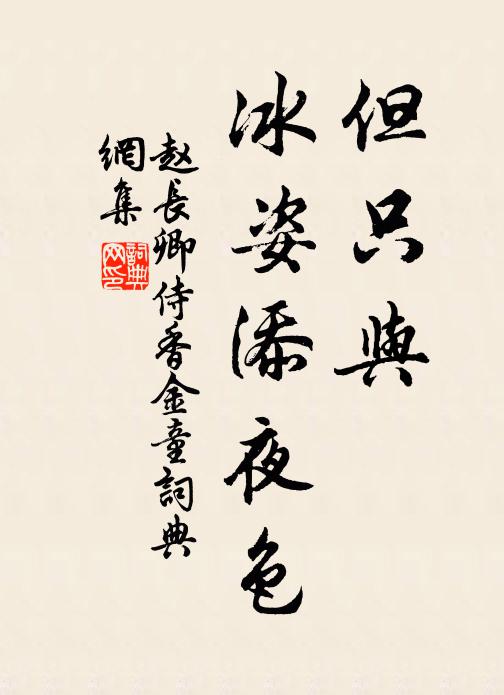 但只與
冰姿添夜色
赵長卿侍香金童詞典
網集
詞典网印